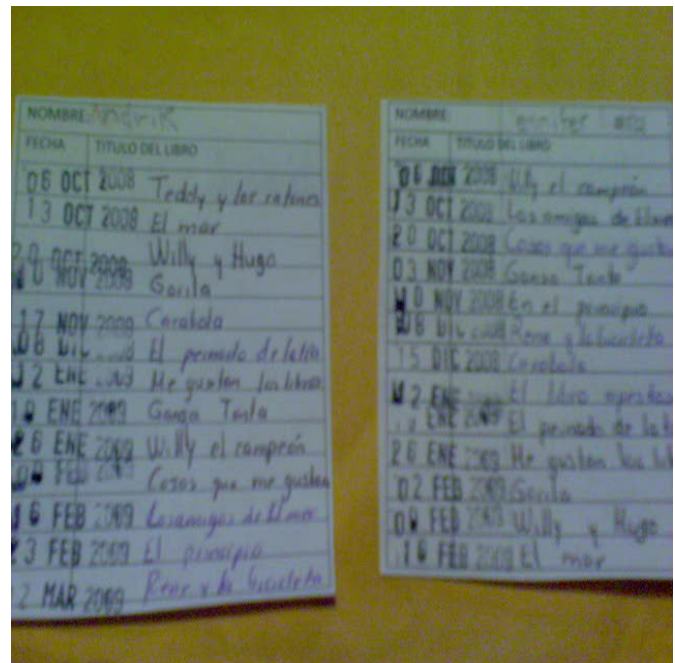 NOMBRE: Andrik
FECHA TITULO DEL LIBRO
06 OCT 2008 Teddy y los ratones
13 OCT 2008 El mar
20 OCT 2008 Willy y Hugo
10 NOV 2008 Gorila
17 NOV 2008 Carabola
08 DIC 2008 El peinado de la tía
12 ENE Me gustan los libros
19 ENE 2009 Gansa Tonta
26 ENE 2009 Willy el campeón
09 FEB 2009 Cosas que me gustan
16 FEB 2009 Los amigos de Elmer
23 FEB 2009 El principio
2 MAR 2009 Rene y la bicicleta
NOMBRE: ennifer
FECHA TITULO DEL LIBRO
06 2008 Willy el campeón
13 OCT 2008 Los amigos de Elmer
20 OCT 2008 Cosas que me gustan
03 NOV 2008 Gansa Tonta
10 NOV 2008 En el principio
08 DIC 2008 Rene y la bicicleta
15 DIC 2008 Carabola
12 ENE El libro
ENE 2009 El peinado de la tía
26 ENE 2009 Me gustan los lib
02 FEB 2009 Gorila
09 FEB 2009 Willy y Hugo
16 FEB 2009 El mar